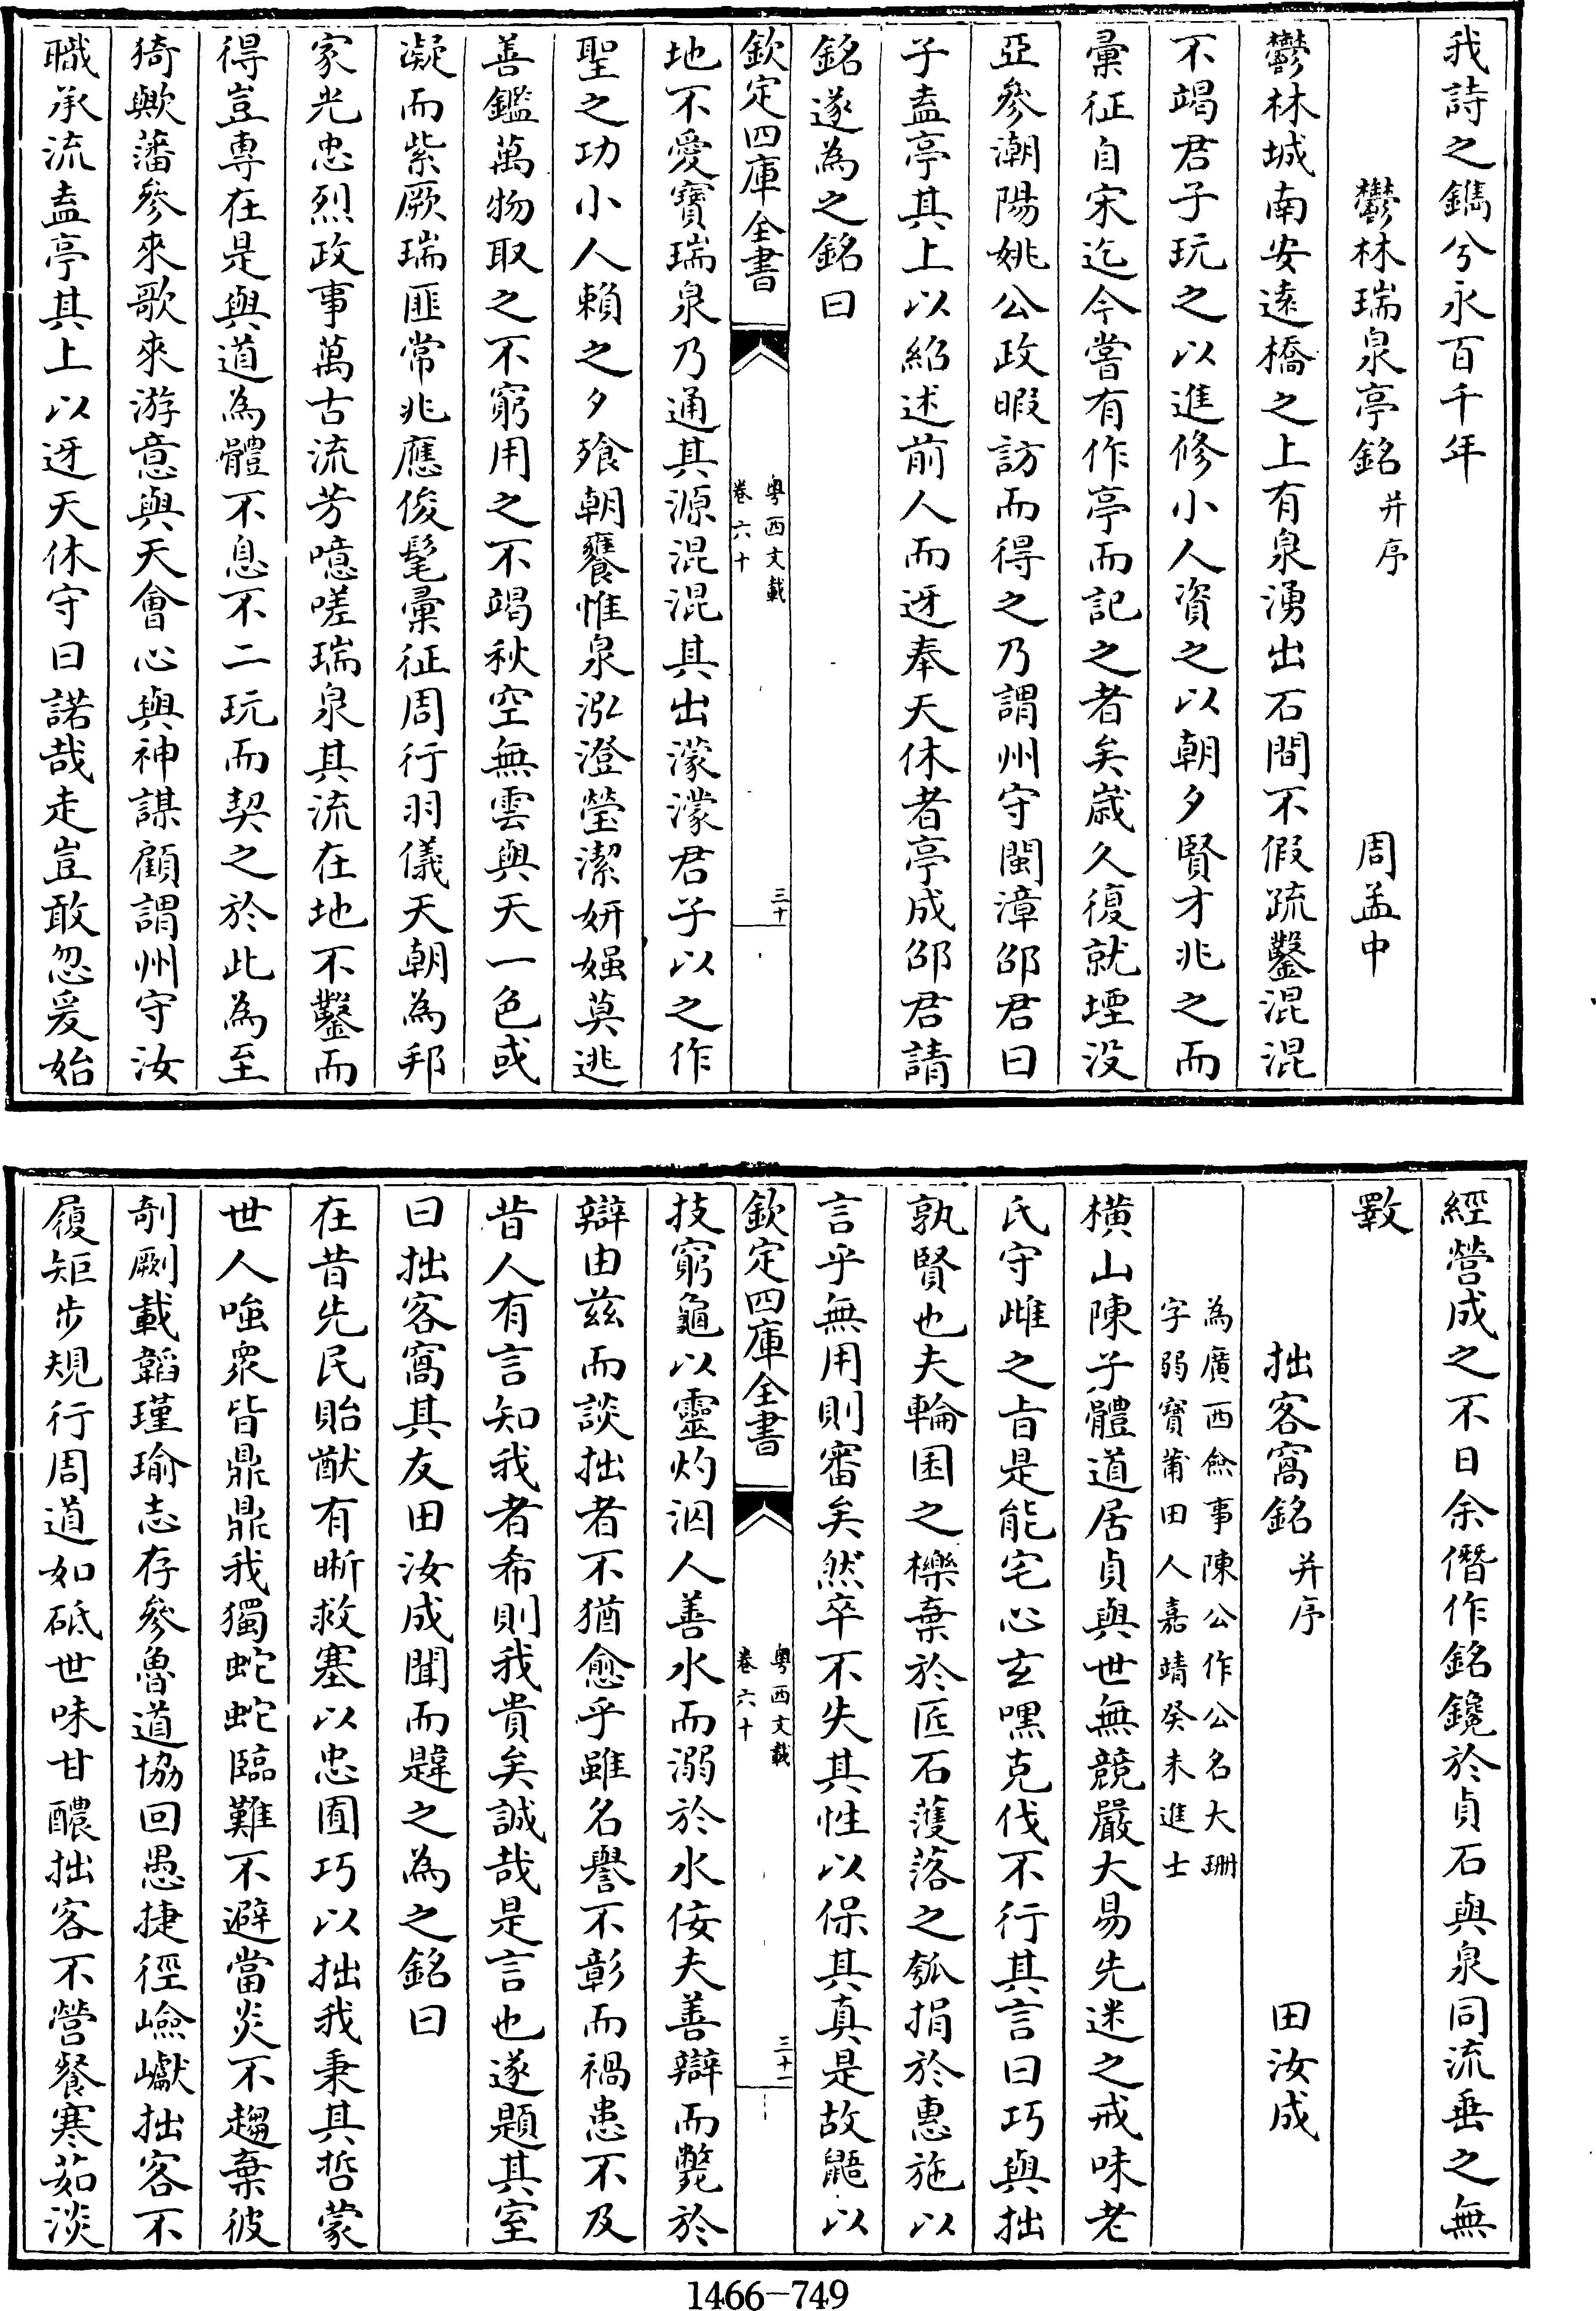 我詩之鐫兮永百千年
鬱林瑞泉亭銘并序　周孟中
鬱林城南安遠橋之上有泉湧出石間不假疏鑿混混
不竭君子玩之以進修小人資之以朝夕賢才兆之而
彚征自宋迄今嘗有作亭而記之者矣歲久復就堙没
亞參潮陽姚公政暇訪而得之乃謂州守閩漳邵君曰
子盍亭其上以紹述前人而迓奉天休者亭成邵君請
銘遂為之銘曰
欽定四庫全書
粤西文載
卷六十
三十
地不愛寶瑞泉乃通其源混混其出濛濛君子以之作
聖之功小人賴之夕飱朝饔惟泉泓澄瑩潔妍媸莫逃
善鑑萬物取之不窮用之不竭秋空無雲與天一色或
凝而紫厥瑞匪常兆應俊髦彚征周行羽儀天朝為邦
家光忠烈政事萬古流芳噫嗟瑞泉其流在地不鑿而
得豈専在是與道為體不息不二玩而契之於此為至
猗歟藩參來歌來游意與天會心與神謀顧謂州守汝
職承流盍亭其上以迓天休守曰諾哉走豈敢忽爰始
經營成之不日余僭作銘鑱於貞石與泉同流垂之無
斁
拙客窩銘并序　田汝成
為廣西僉事陳公作公名大珊
字弱寶莆田人嘉靖癸未進士
横山陳子體道居貞與世無競嚴大易先迷之戒味老
氏守雌之㫖是能宅心玄嘿克伐不行其言曰巧與拙
孰賢也夫輪囷之櫟棄於匠石濩落之瓠捐於惠施以
言乎無用則審矣然卒不失其性以保其真是故鼯以
欽定四庫全書
粤西文載
卷六十
三十一
技窮龜以靈灼泅人善水而溺於水佞夫善辯而斃於
辯由兹而談拙者不猶愈乎雖名譽不彰而禍患不及
昔人有言知我者希則我貴矣誠哉是言也遂題其室
曰拙客窩其友田汝成聞而韙之為之銘曰
在昔先民貽猷有晰救塞以忠囿巧以拙我秉其哲蒙
世人嗤衆皆鼎鼎我獨蛇蛇臨難不避當炎不趨棄彼
剞劂載韜瑾瑜志存參魯道協回愚捷徑嶮巇拙客不
履矩步規行周道如砥世味甘醲拙客不營餐寒茹淡
1466-749